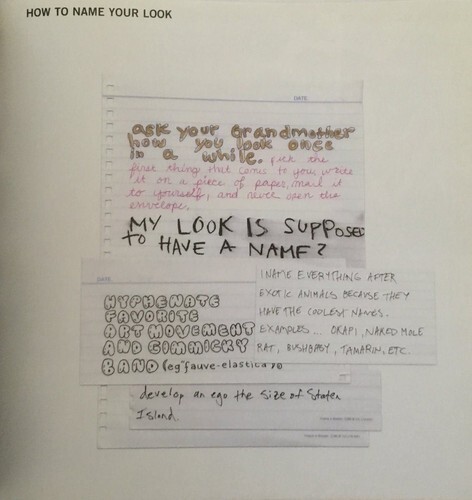 HOW TO NAME YOUR LOOK
DATE
ask your grandmother
how you look once
in a while. pick the
first thing that comes to you, write
it on a piece of paper, mail it
to yourself, and never open the
envelope.
MY LOOK IS SUPPOSED
to HAVE A NAME?
DATE
I NAME EVERYTHING AFTER
EXOTIC ANIMALS BECAUSE THEY
HAVE THE COOLEST NAMES.
EXAMPLES... OKAPI, NAKED MOLE
RAT, BUSHBABY, TAMARIN, ETC.
HYPHENATE
FAVORITE
ART MOVEMENT
AND GIMMICKY
BAND (eg "fauve-elastica")
develop an ego the size of Staten
Island.